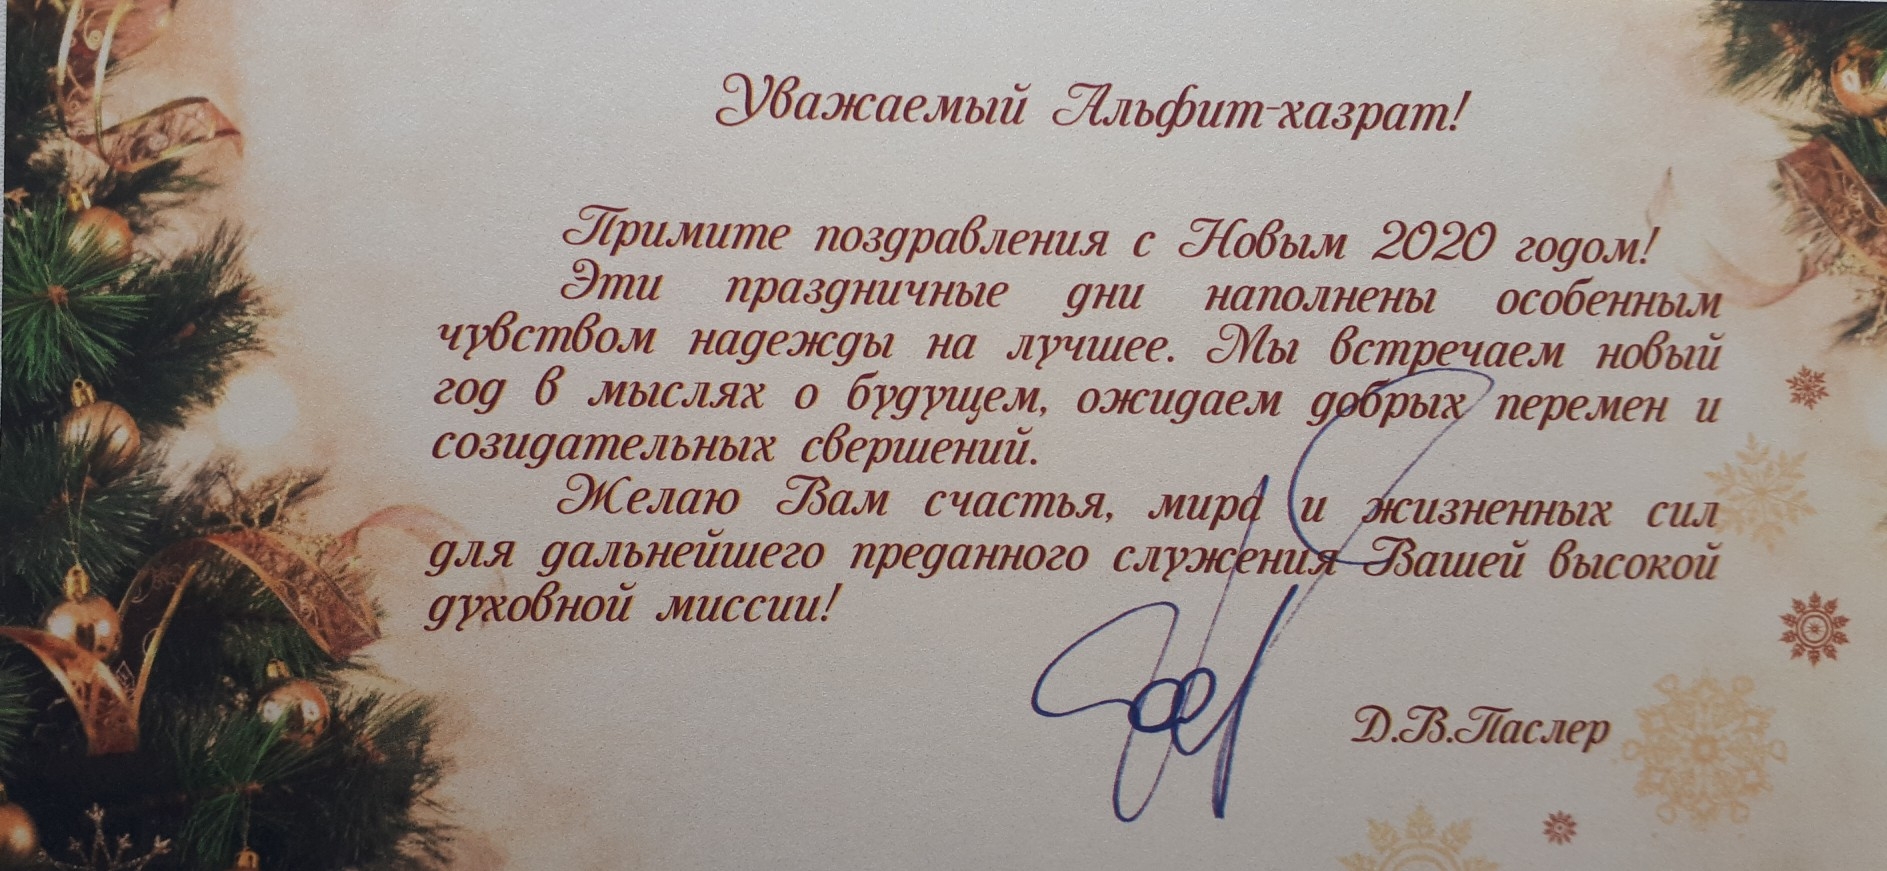 Уважаемый Альфит-хазрат!
Примите поздравления с Новым 2020 годом!
Эти праздничные дни наполнены особенным
чувством надежды на лучшее. Мы встречаем новый
год в мыслях о будущем, ожидаем добрых перемен и
созидательных свершений.
Желаю Вам счастья, мира и жизненных сил
для дальнейшего преданного служения Вашей высокой
духовной миссии!
Д.В.Паслер